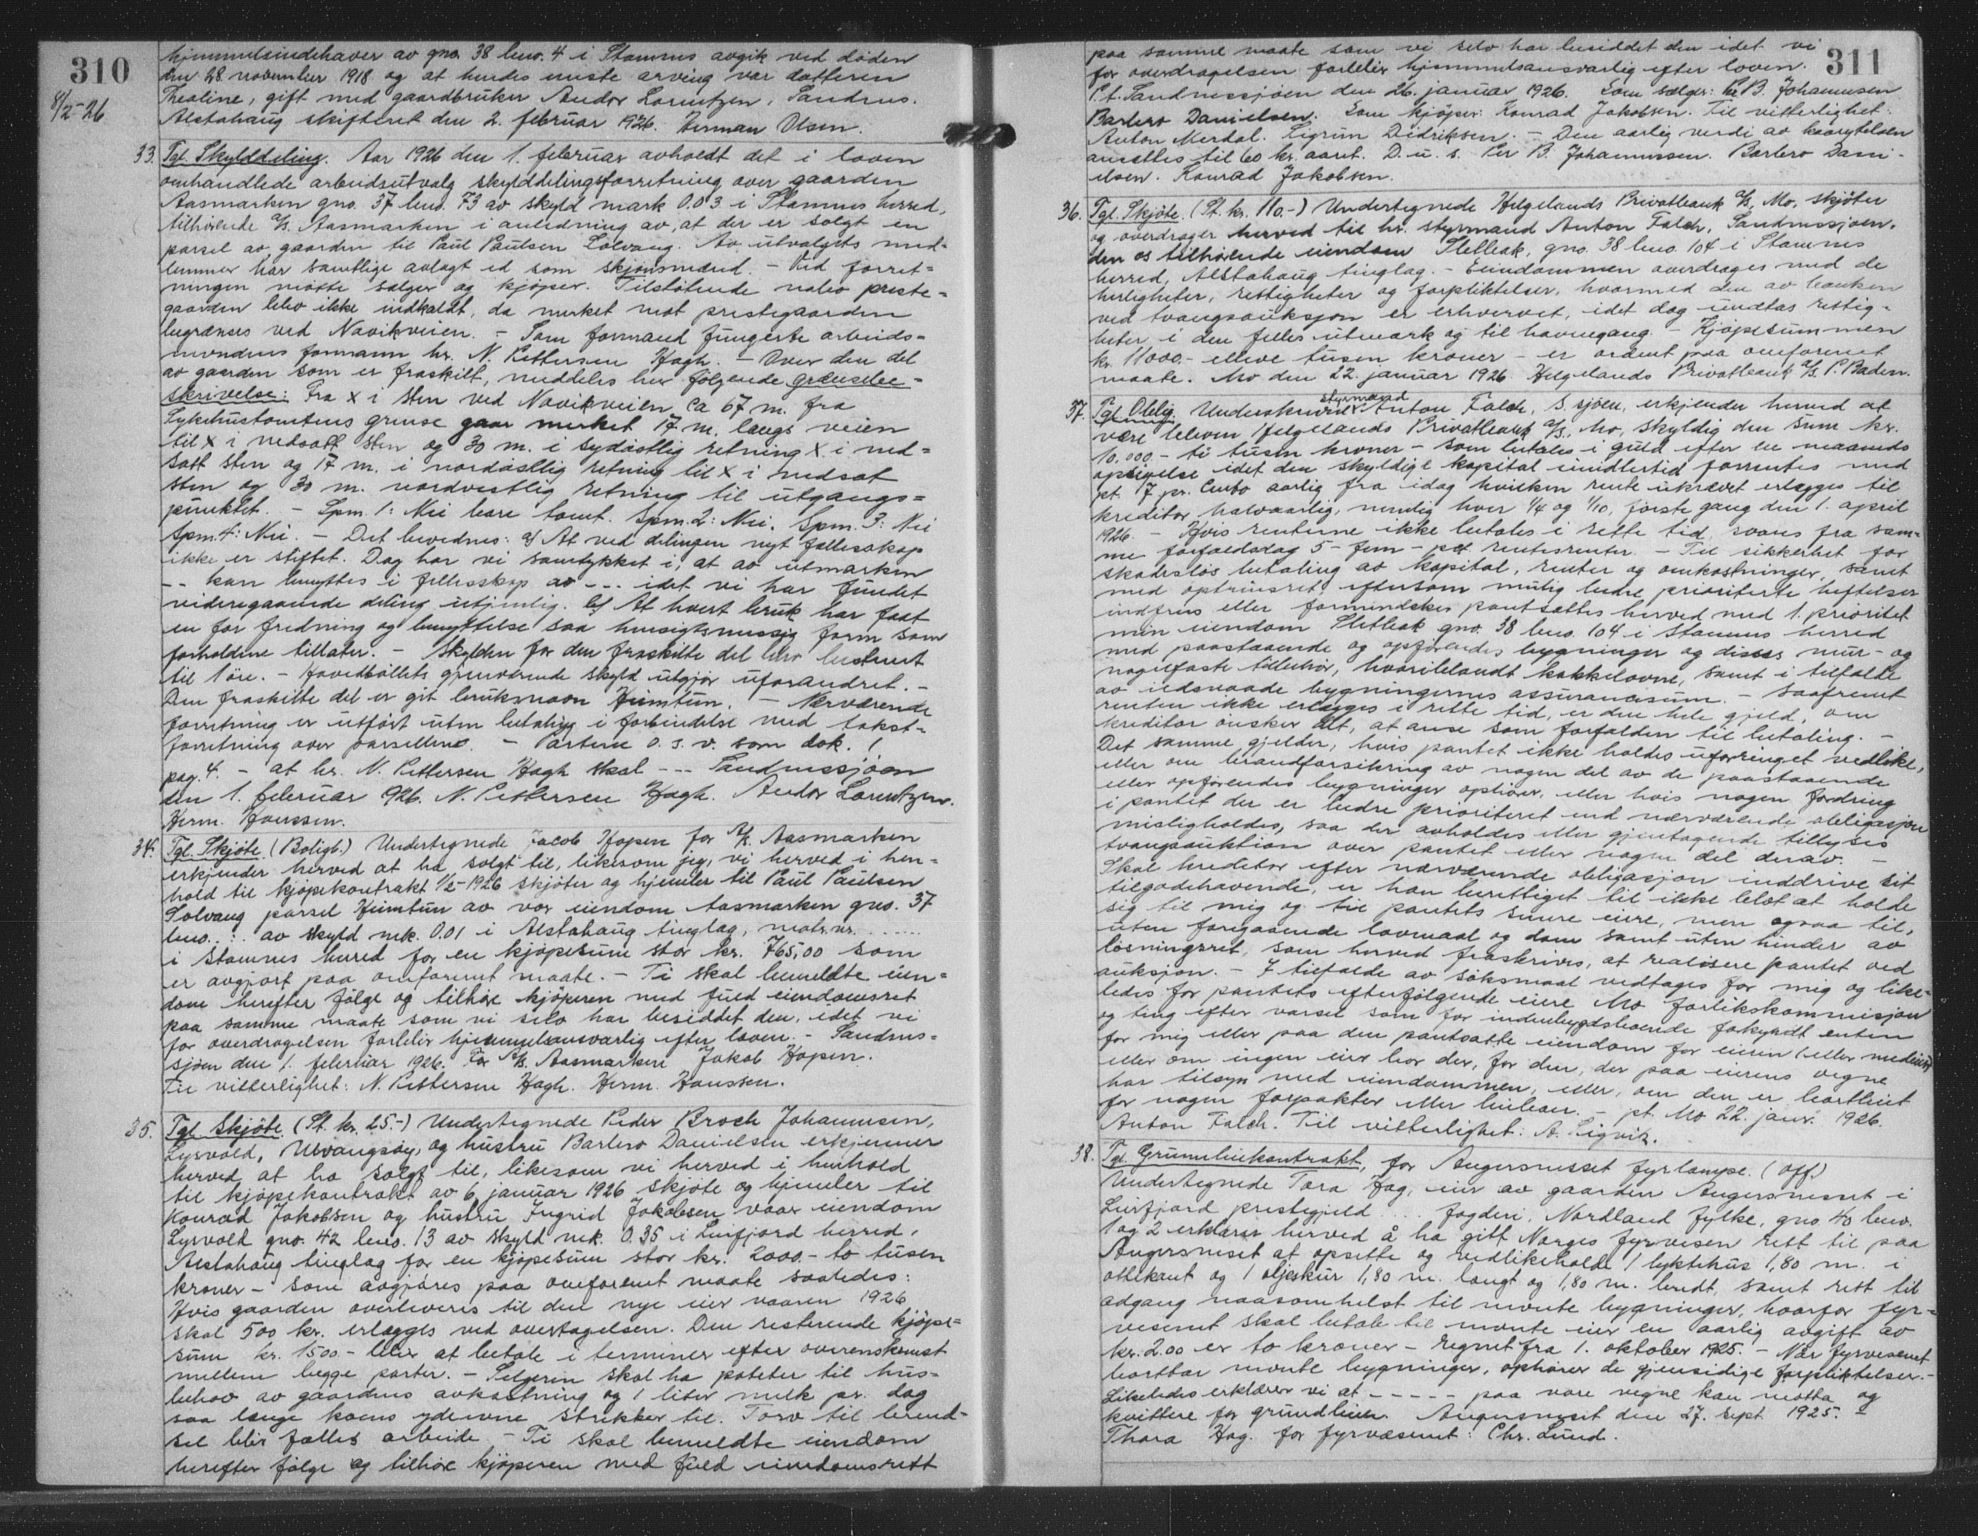 310
hjemmelsindehaver av gno. 38 bno. 4 i Stamnes avgik ved døden
den 28 november 1918 og at hendes eneste arving var datteren
8/2-26
Thealine, gift med gaardbruker Andor Lorentzen, Sandnes.
Alstahaug skifteret den 2. februar 1926. Herman Olsen.
33. Tgl. Skylddeling. Aar 1926 den 1. februar avholdt det i loven
omhandlede arbeidsutvalg skylddelingsforretning over gaarden
Aasmarken gno. 37 bno. 73 av skyld mark 0.03 i Stamnes herred,
tilhørende A/S. Aasmarken i anledning av at der er solgt en
parsel av gaarden til Paul Paulsen Solvang. Av utvalgets med-
lemmer har samtlige avlagt ed som skjønsmænd. - Ved forret-
ningen møtte sælger og kjøper. Tilstøtende nabo preste-
gaarden blev ikke indkaldt, da merket mot prestegaarden
begrænses ved Novikveien. - Som formand fungerte arbeids-
nevndens formann hr. N. Pettersen Hagh. - Over den del
av gaarden som er fraskilt, meddeles her følgende grænsebe-
skrivelse: Fra x i sten ved Novikveien ca 67 m. fra
Sykehustomtens grense gaar merket 17 m. langs veien
til x i nedsatt sten og 30 m. i sydøstlig retning x i ned-
satt sten og 17 m. i nordøstlig retning til x i nedsat
sten og 30 m. nordvestlig retning til utgangs-
punktet. - Spm. 1: Nei bare tomt. Spm. 2: Nei. Spm. 3: Nei
Spm. 4: Nei. - Det bevidnes: a) At ved delingen nyt fællesskap
ikke er stiftet. Dog har vi samtykket i, at av utmarken
-- kan benyttes i fellesskap av --- idet vi har fundet
videregaaende deling utjenlig. b) At hvert bruk har faat
en for fredning og benyttelse saa hensigtsmessig form som
forholdene tillater. - Skylden for den fraskilte del blev bestemt
til 1 øre. - Hovedbøllets gjenværende skyld utgjør uforandret. -
Den fraskilte del er git bruksnavn Heimtun. - Nærværende
forretning er utført uten betaling i forbindelse med takst-
forretning over parsellene. - Partene o. s. v. som dok. 1
pag. 4. - at hr. N. Pettersen Hagh skal --- Sandnessjøen
den 1. februar 926. N. Pettersen Hagh. Andor Lorentzen.
Herm. Hanssen.
34. Tgl. Skjøte. (Boligb.) Undertegnede Jacob Hopen for A/S. Aasmarken
erkjender herved at ha solgt til, likesom jeg, vi herved i hen-
hold til kjøpekontrakt 1/2-1926 skjøter og hjemler til Paul Paulsen
Solvang parsel Heimtun av vor eiendom Aasmarken gno. 37
bno. ... av skyld mk. 0.01 i Alstahaug tinglag, matr. nr. ......
i Stamnes herred for en kjøpesum stor kr. 765,00 som
er avgjort paa omforenet maate. - Ti skal bemeldte eien-
dom herefter følge og tilhøre kjøperen med fuld eiendomsret
paa samme maate som vi selv har besiddet den, idet vi
for overdragelsen forblir hjemmelsansvarlig efter loven. - Sandnes-
sjøen den 1. februar 1926. For A/S. Aasmarken Jakob Hopen.
Til vitterlighet: N. Pettersen Hagh. Herm. Hanssen.
35. Tgl. Skjøte. (St. kr. 25.-) Undertegnede Peder Broch Johannesen,
Lyrvold, Ulvangsøy, og hustru Barbro Danielsen erkjenner
herved at ha solgt til, likesom vi herved i henhold
til kjøpekontrakt av 6. januar 1926 skjøte og hjemler til
Konrad Jakobsen og hustru Ingrid Jakobsen vaar eiendom
Lyrvold gno. 42 bno. 13 av skyld mk. 0.35 i Leirfjord herred,
Alstahaug tinglag for en kjøpesum stor kr. 2000.- to tusen
kroner - som avgjøres paa omforenet maate saaledes:
Hvis gaarden overleveres til den nye eier vaaren 1926
skal 500 kr. erlægges ved overtagelsen. Den resterende kjøpe-
sum kr. 1500.- blir at betale i terminer efter overenskomst
mellem begge parter. - Selgeren skal ha poteter til hus-
behov av gaardens avkastning og 1 liter melk pr. dag
saa længe koens ydeevne strikker til. Torv til brend-
sel blir fælles arbeide. - Ti skal bemeldte eiendom
herefter følge og tilhøre kjøperen med fuld eiendomsrett
311
paa samme maate som vi selv har besiddet den idet vi
for overdragelsen forblir hjemmelsansvarlig efter loven.
P.t. Sandnessjøen den 26. januar 1926. Som sælger: Pe B. Johannesen
Barbro Danielsen. Som kjøper: Konrad Jakobsen. Til vitterlighet:
Anton Merdal. Sigrun Didriksen. - Den aarlig verdi av kaarytelsen
ansettes til 60 kr. aaret. D. u. s. Per B. Johannessen. Barbro Dani-
elsen. Konrad Jakobsen.
36. Tgl. Skjøte. (St. kr. 110.-) Undertegnede Helgelands Privatbank A/S, Mo, skjøter
og overdrager herved til hr. styrmand Anton Falch, Sandnessjøen,
den os tilhørende eiendom Sletbak, gno. 38 bno. 104 i Stamnes
herred, Alstahaug tinglag. - Eiendommen overdrages med de
herligheter, rettigheter og forpliktelser, hvormed den av banken
ved tvangsauksjon er erhvervet, idet dog undtas rettig-
heter i den felles utmark og til havnegang - Kjøpesummen
kr. 11000.- elleve tusen kroner - er ordnet paa omforenet
maate. Mo den 22. januar 1926 Helgelands Privatbank A/S. P. Baden.
37. Tgl. Oblig. Underskrevne styrmand Anton Falch, S.sjøen, erkjender herved at
være bleven Helgelands Privatbank A/S, Mo, skyldig den sum kr.
10.000.- ti tusen kroner - som betales i guld efter en maaneds
opsigelse idet den skyldige kapital imidlertid forrentes med
pt. 7 pr. cento aarlig fra idag hvilken rente ukrævet erlægges til
kreditor halvaarlig, nemlig hver 1/4 og 1/10, første gang den 1. april
1926. - Hvis renterne ikke betales i rette tid, svares fra sam-
me forfaldsdag 5 - fem - pct rentesrenter. - Til sikkerhet for
skadesløs betaling av kapital, renter og omkostninger, samt
med optrinsret eftersom mulig bedre prioriterte heftelser
indfries eller formindskes pantsættes herved med 1. prioritet
min eiendom Sletbak gno. 38 bno. 104 i Stamnes herred
med paastaaende og opførendes bygninger og disses mur- og
nagelfaste tilbehør, hvoriblandt kakkelovne, samt i tilfælde
av ildsvaade bygningernes assurancesum. - Saafremt
renten ikke erlægges i rette tid, er den hele gjeld, om
kreditor ønsker det, at anse som forfalden til betaling. -
Det samme gjelder, hvis pantet ikke holdes uforringet vedlike,
eller om brandforsikring av nogen del av de paastaaende
eller opførendes bygninger ophører, eller hvis nogen fordring
i pantet der er bedre prioriteret end nærværende obligasjon
misligholdes, saa der avholdes eller gjentagende tillyses
tvangsauktion over pantet eller nogen del derav. -
Skal kreditor efter nærværende obligasjon inddrive sit
tilgodehavende, er han berettiget til ikke blot at holde
sig til mig og til pantets senere eiere, men ogsaa til,
uten foregaaende lovmaal og dom samt uten hinder av
løsningsret, som herved fraskrives, at realisere pantet ved
auksjon. - I tilfælde av søksmaal vedtages for mig og like-
ledes for pantets efterfølgende eiere Mo forlikskommisjon
og ting efter varsel som for indenbygdsboende forkyndt enten
for mig eller paa den pantsatte eiendom for eieren (eller medeier)
eller om ingen eier bor der, for den, der paa eierens vegne
har tilsyn med eiendommen, eller, om den er bortleiet
for nogen forpakter eller leiebær. - pt. Mo 22. janr. 1926.
Anton Falch. Til vitterlighet: A. Sigvik.
38. Tgl. Grunnleiekontrakt, for Angersnesset fyrlampe. (Off.)
Undertegnede Tora Hag, eier av gaarden Angersnesset i
Leirfjord prestegjeld ... fogderi, Nordland fylke, gno. 40 bno.
1 og 2 erklærer herved å ha gitt Norges fyrvesen rett til paa
Angersneset at opsette og vedlikeholde 1 lyktehus 1,80 m. i
ottekant og 1 oljeskur 1,80 m. langt og 1,80 m. bredt, samt rett til
adgang naarsomhelst til nevnte bygninger, hvorfor fyr-
vesenet skal betale til nevnte eier en aarlig avgift av
kr. 2.00 er to kroner - regnet fra 1. oktober 1925. - Når fyrvesenet
bortbar nevnte bygninger, ophører de gjensidige forpliktelser. -
Likeledes erklærer vi at ----- paa vore vegne kan motta og
kvittere for grundleien. Angersneset den 27. sept. 1925.
Thora Hag. for fyrvæsenet: Chr. Lund.